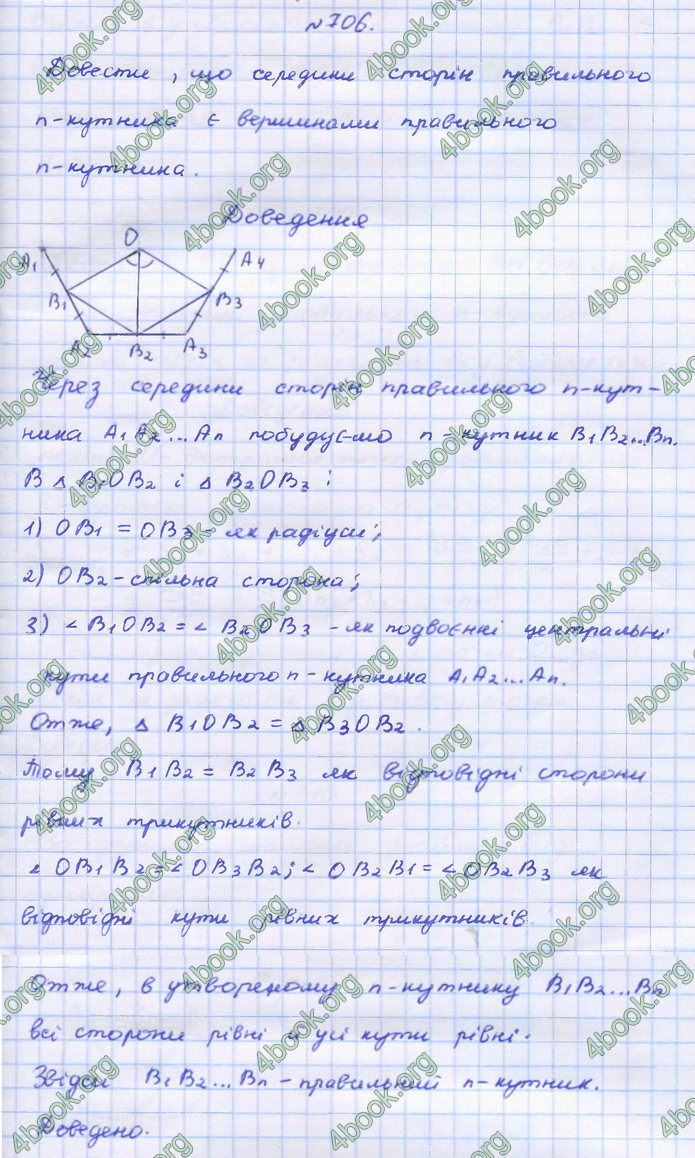 №706.
Довести, що середини сторін правильного
n-кутника є вершинами правильного
n-кутника.
Доведення
O
A1 A4
B1 B3
A2 B2 A3
Через середини сторін правильного n-кут-
ника A1A2...An побудуємо n-кутник B1B2...Bn.
В △ B1OB2 і △ B2OB3:
1) OB1 = OB3 - як радіуси;
2) OB2 - спільна сторона;
3) ∠ B1OB2 = ∠ B2OB3 - як подвоєнні центральні
кути правильного n-кутника A1A2...An.
Отже, △ B1OB2 = △ B3OB2.
Тому B1B2 = B2B3 як відповідні сторони
рівних трикутників.
∠ OB1B2 = ∠ OB3B2; ∠ OB2B1 = ∠ OB2B3 як
відповідні кути рівних трикутників.
Отже, в утвореному n-кутнику B1B2...Bn
всі сторони рівні и усі кути рівні.
Звідси B1B2...Bn - правильний n-кутник.
Доведено.
4book.org